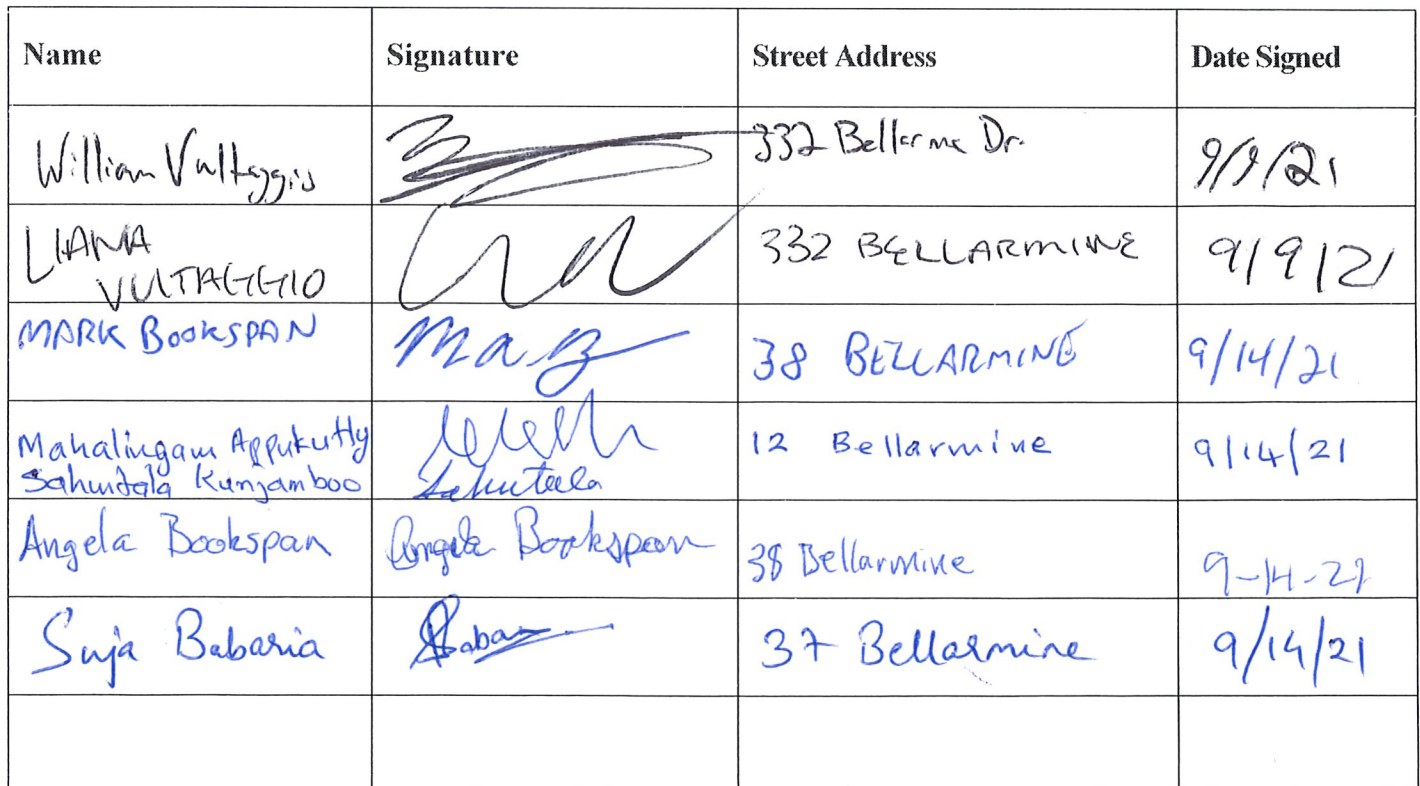 Name Signature Street Address Date Signed
William Vultaggio 332 Bellarme Dr. 9/9/21
LIANA
VULTAGGIO 332 BELLARMINE 9/9/21
MARK BOOKSPAN 38 BELLARMINE 9/14/21
Mahalingam Appukutty 12 Bellarmine 9/14/21
Sahuntala Kunjamboo Sahuteela
Angela Bookspan Angela Bookspan 38 Bellarmine 9-14-21
Suja Babaria 37 Bellarmine 9/14/21